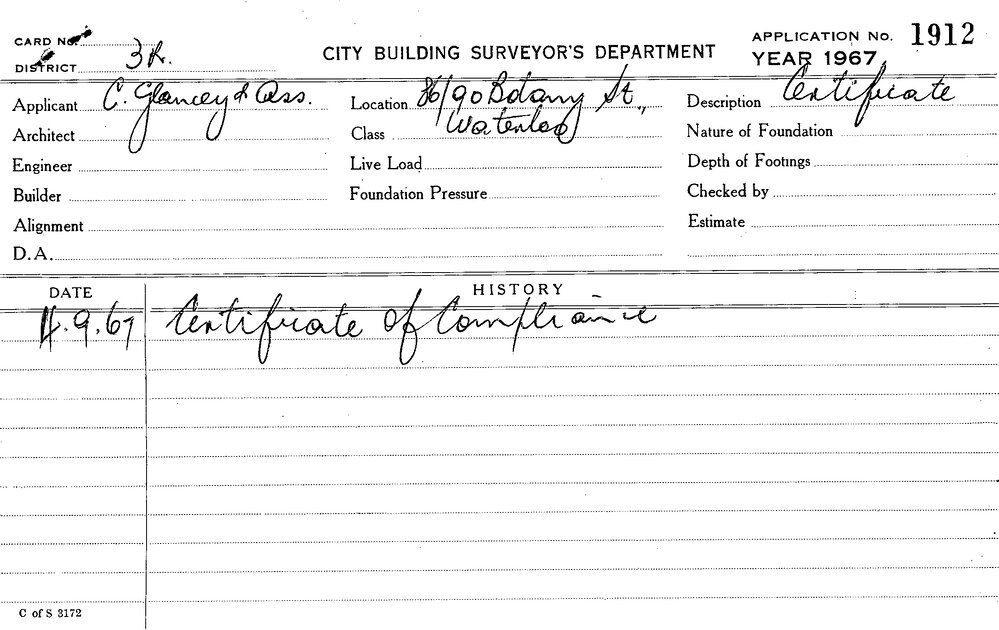 CARD No.
DISTRICT 3R.
CITY BUILDING SURVEYOR'S DEPARTMENT
APPLICATION No. 1912
YEAR 1967
Applicant C. Glancey & Ass.
Location 86/90 Botany St.,
Description Certificate
Architect
Class Waterloo
Nature of Foundation
Engineer
Live Load
Depth of Footings
Builder
Foundation Pressure
Checked by
Alignment
Estimate
D.A.
DATE HISTORY
4.9.67 Certificate of Compliance
C of S 3172